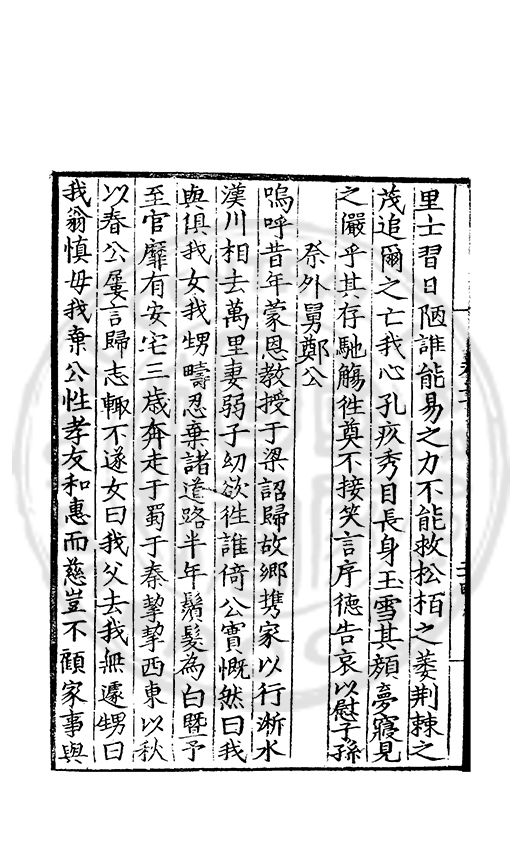 里士習日陋誰能易之力不能救松柏之萎荆棘之
茂追爾之亡我心孔疚秀目長身玉雪其顔夢寢見
之儼乎其存馳觴徃奠不接笑言序德告哀以慰子孫
祭外舅鄭公
嗚呼昔年蒙恩教授于梁詔歸故鄉携家以行淅水
漢川相去萬里妻弱子幼欲徃誰倚公實慨然曰我
與俱我女我甥疇忍棄諸道路半年鬚髮為白暨予
至官靡有安宅三歳奔走于蜀于秦挈挈西東以秋
以春公屢言歸志輙不遂女曰我父去我無遽甥曰
我翁慎毋我棄公性孝友和惠而慈豈不顧家事與